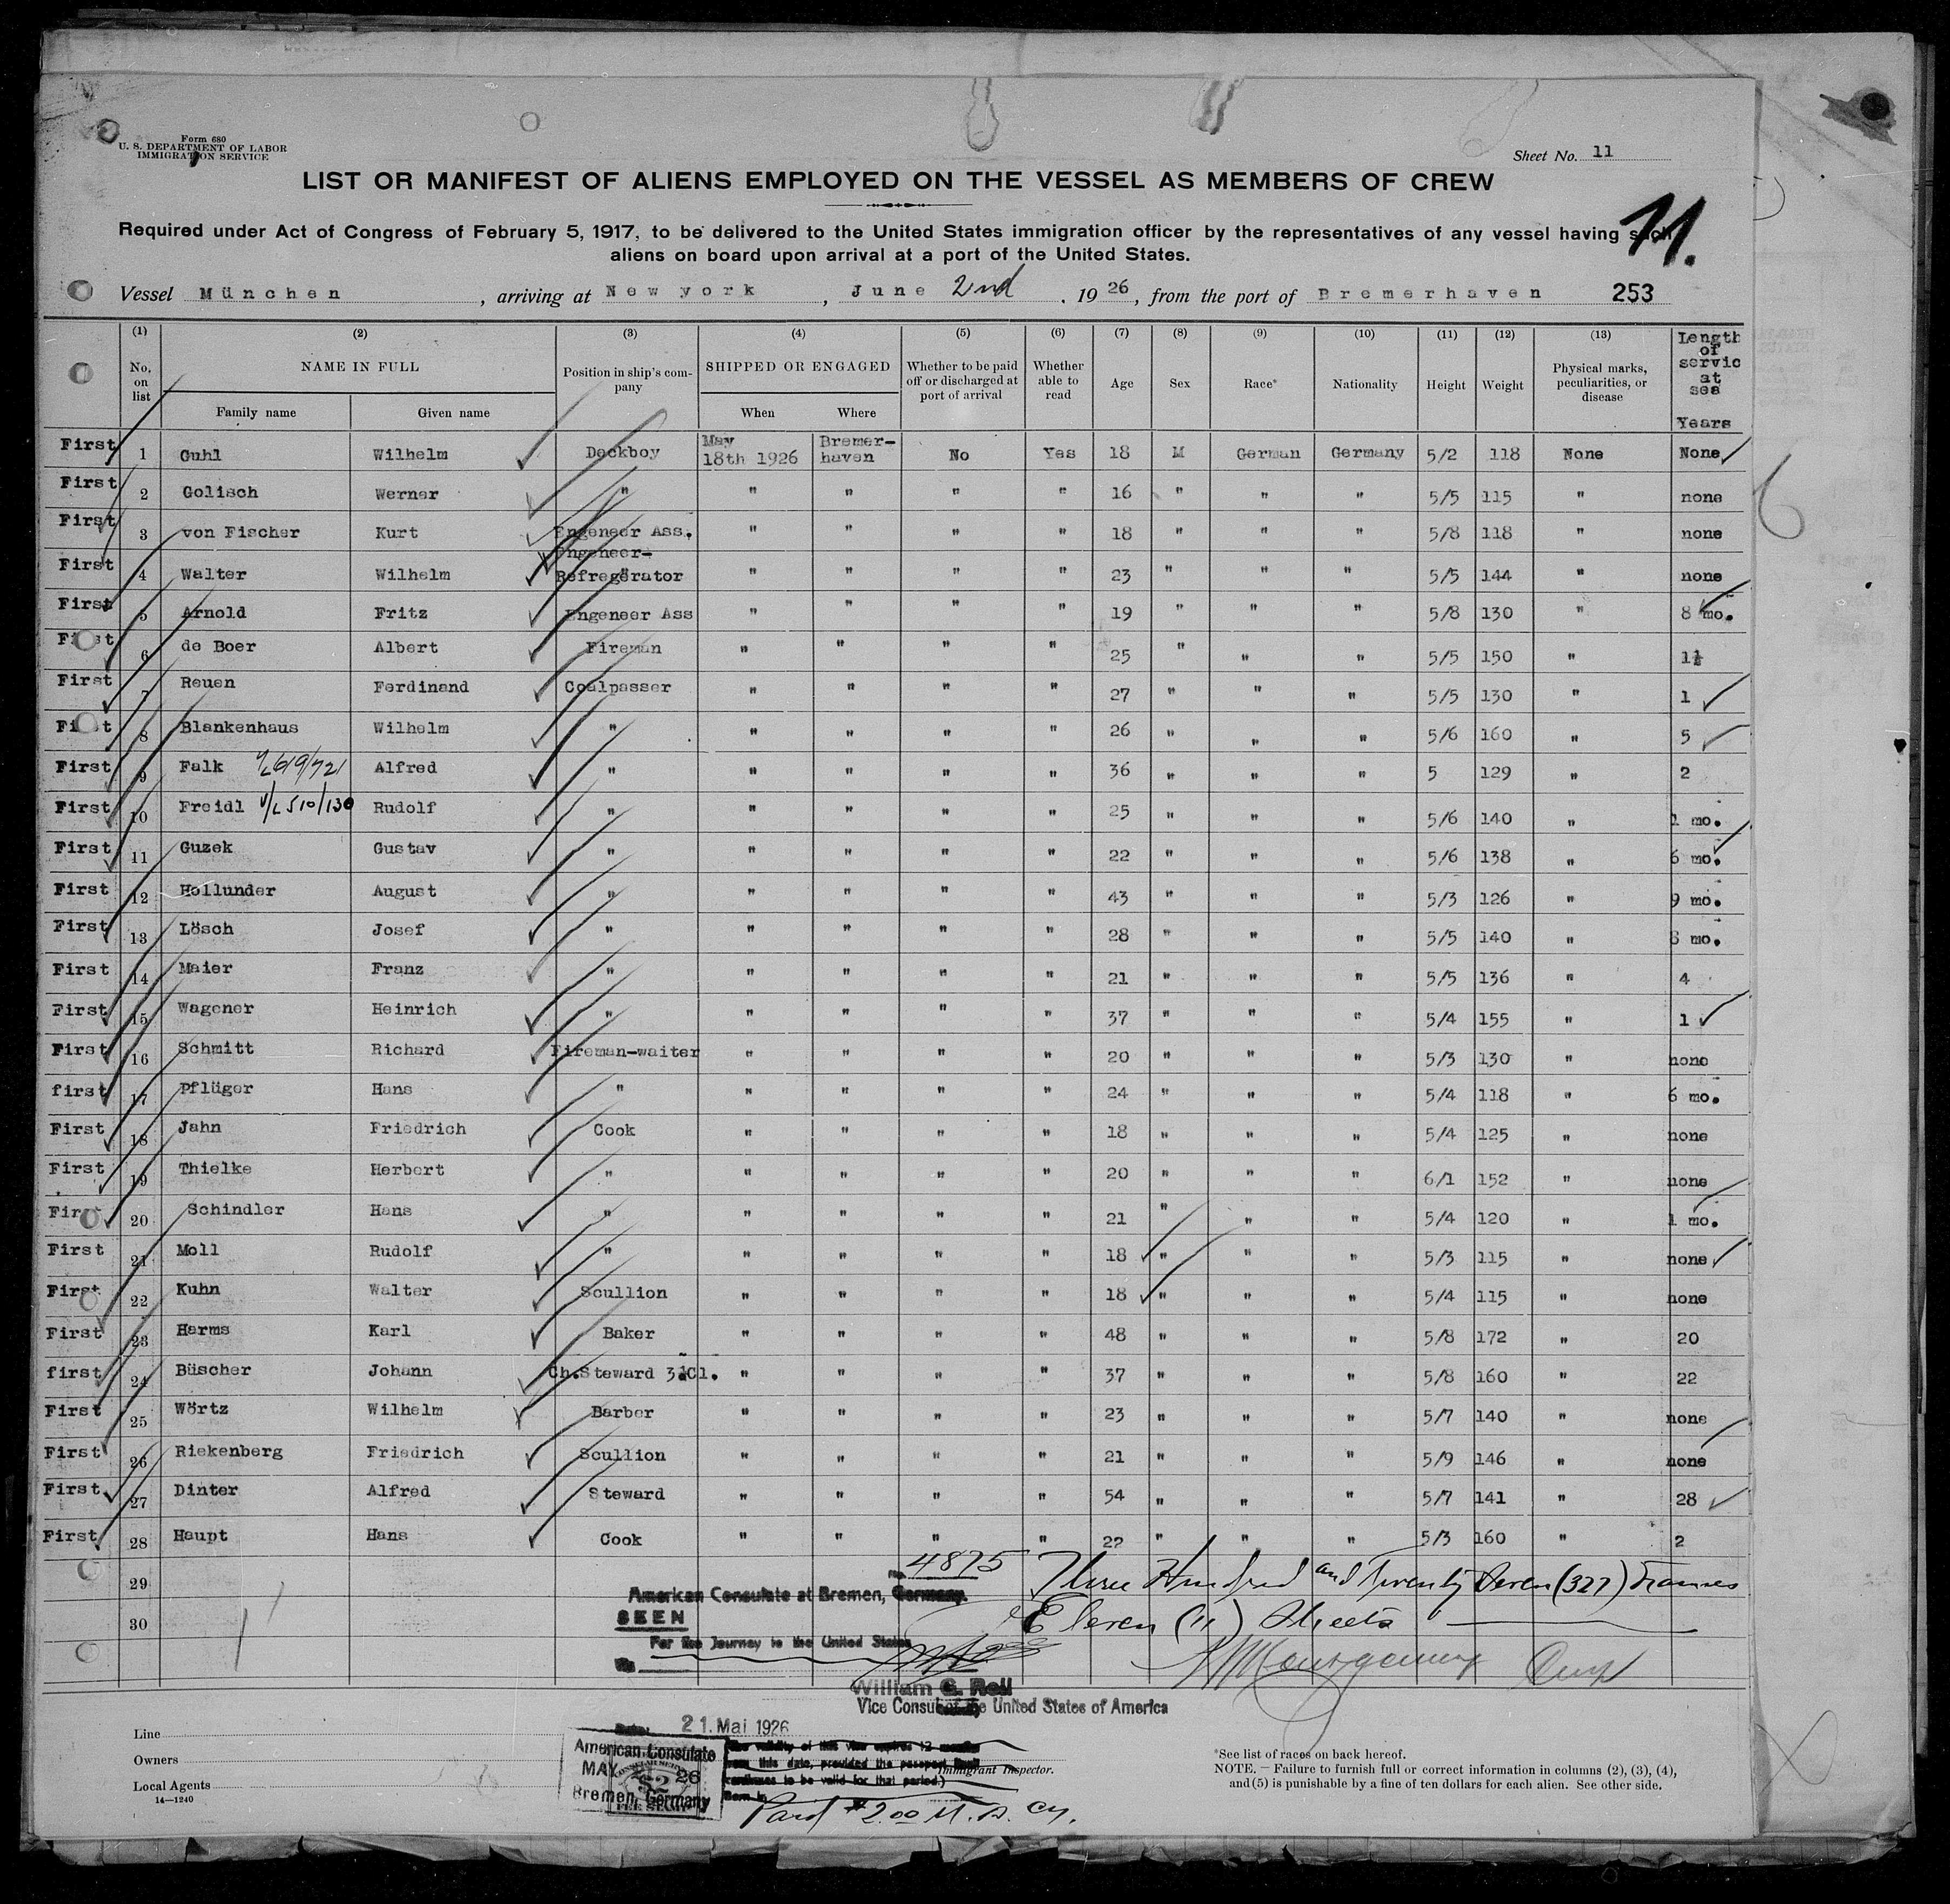 Form 680
U. S. DEPARTMENT OF LABOR
IMMIGRATION SERVICE
Sheet No. 11
LIST OR MANIFEST OF ALIENS EMPLOYED ON THE VESSEL AS MEMBERS OF CREW
11.
Required under Act of Congress of February 5, 1917, to be delivered to the United States immigration officer by the representatives of any vessel having such
aliens on board upon arrival at a port of the United States.
Vessel München, arriving at New york, June 2nd, 1926, from the port of Bremerhaven 253
(1) (2) (3) (4) (5) (6) (7) (8) (9) (10) (11) (12) (13)
No. on list NAME IN FULL Family name Given name Position in ship's company SHIPPED OR ENGAGED When Where Whether to be paid off or discharged at port of arrival Whether able to read Age Sex Race* Nationality Height Weight Physical marks, peculiarities, or disease Length of servic at sea Years
First 1 Guhl Wilhelm Deckboy May 18th 1926 Bremer-haven No Yes 18 M German Germany 5/2 118 None None
First 2 Golisch Werner " " " " " 16 " " " 5/5 115 " none
First 3 von Fischer Kurt Engeneer Ass. " " " " 18 " " " 5/8 118 " none
First 4 Walter Wilhelm Engeneer-Refregerator " " " " 23 " " " 5/5 144 " none
First 5 Arnold Fritz Engeneer Ass " " " " 19 " " " 5/8 130 " 8 mo.
First 6 de Boer Albert Fireman " " " " 25 " " " 5/5 150 "
First 7 Reuen Ferdinand Coalpasser " " " " 27 " " " 5/5 130 " 1
First 8 Blankenhaus Wilhelm " " " " " 26 " " " 5/6 160 " 5
First 9 Falk Alfred " " " " " 36 " " " 5 129 " 2
First 10 Freidl V/L 510/130 Rudolf " " " " " 25 " " " 5/6 140 " 1 mo.
First 11 Guzek Gustav " " " " " 22 " " " 5/6 138 " 6 mo.
First 12 Hollunder August " " " " " 43 " " " 5/3 126 " 9 mo.
First 13 Lösch Josef " " " " " 28 " " " 5/5 140 " mo.
First 14 Maier Franz " " " " " 21 " " " 5/5 136 " 4
First 15 Wagener Heinrich " " " " " 37 " " " 5/4 155 " 1
First 16 Schmitt Richard Fireman-waiter " " " " 20 " " " 5/3 130 " none
first 17 Pflüger Hans " " " " " 24 " " " 5/4 118 " 6 mo.
First 18 Jahn Friedrich Cook " " " " 18 " " " 5/4 125 " none
First 19 Thielke Herbert " " " " " 20 " " " 6/1 152 " none
First 20 Schindler Hans " " " " " 21 " " " 5/4 120 " 1 mo.
First 21 Moll Rudolf " " " " " 18 " " " 5/3 115 " none
First 22 Kuhn Walter Scullion " " " " 18 " " " 5/4 115 " none
First 23 Harms Karl Baker " " " " 48 " " " 5/8 172 " 20
first 24 Büscher Johann Ch.Steward 3dCl. " " " " 37 " " " 5/8 160 " 22
First 25 Wörtz Wilhelm Barber " " " " 23 " " " 5/7 140 " none
First 26 Riekenberg Friedrich Scullion " " " " 21 " " " 5/9 146 " none
First 27 Dinter Alfred Steward " " " " 54 " " " 5/7 141 " 28
First 28 Haupt Hans Cook " " " " 22 " " " 5/3 160 " 2
29
30
No. 4875
American Consulate at Bremen, Germany.
SEEN
For the Journey to the United States
Three Hundred and Twenty Seven (327) names
Eleven (11) Sheets
William G. Roll
Vice Consul of the United States of America
Date: 21. Mai 1926
American Consulate
MAY 26
Bremen, Germany
$2
FEE STAMP
(The validity of this visa expires 12 months
from this date, provided the passport
continues to be valid for that period.)
Born in
Paid $2.00 U. S. Cy.
Immigrant Inspector.
Line
Owners
Local Agents
14—1240
*See list of races on back hereof.
NOTE. — Failure to furnish full or correct information in columns (2), (3), (4),
and (5) is punishable by a fine of ten dollars for each alien. See other side.